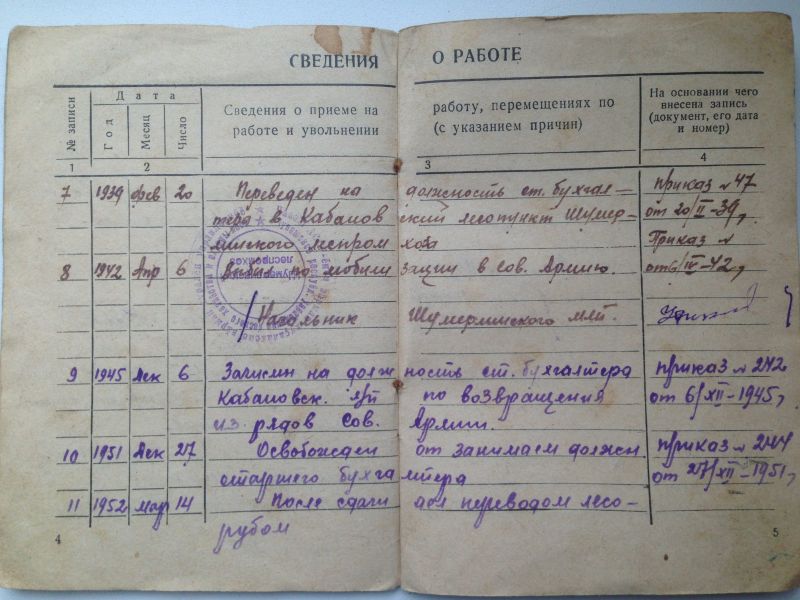 СВЕДЕНИЯ О РАБОТЕ
№ записи
Дата
Год
Месяц
Число
Сведения о приеме на работу, перемещениях по
работе и увольнении (с указанием причин)
На основании чего
внесена запись
(документ, его дата
и номер)
1 2 3 4
7 1939 фев 20 Переведен на должность ст. бухгал- приказ № 47
тера в Кабановский лесопункт Шумер- от 20/II-39,
линского леспромхоза Приказ №
8 1942 Апр 6 по мобилизации в Сов. Армию. от 6/IV-42,
Начальник Шумерлинского
9 1945 Дек 6 Зачислен на должность ст. бухгалтера приказ № 242
Кабановск. л/п по возвращения от 6/XII-1945,
из рядов Сов. Армии.
10 1951 Дек 27 Освобожден от занимаем должн приказ № 244
старшего бухгалтера от 27/XII-1951,
11 1952 мар 14 После сдачи переводом лесо-
рубом
4
5